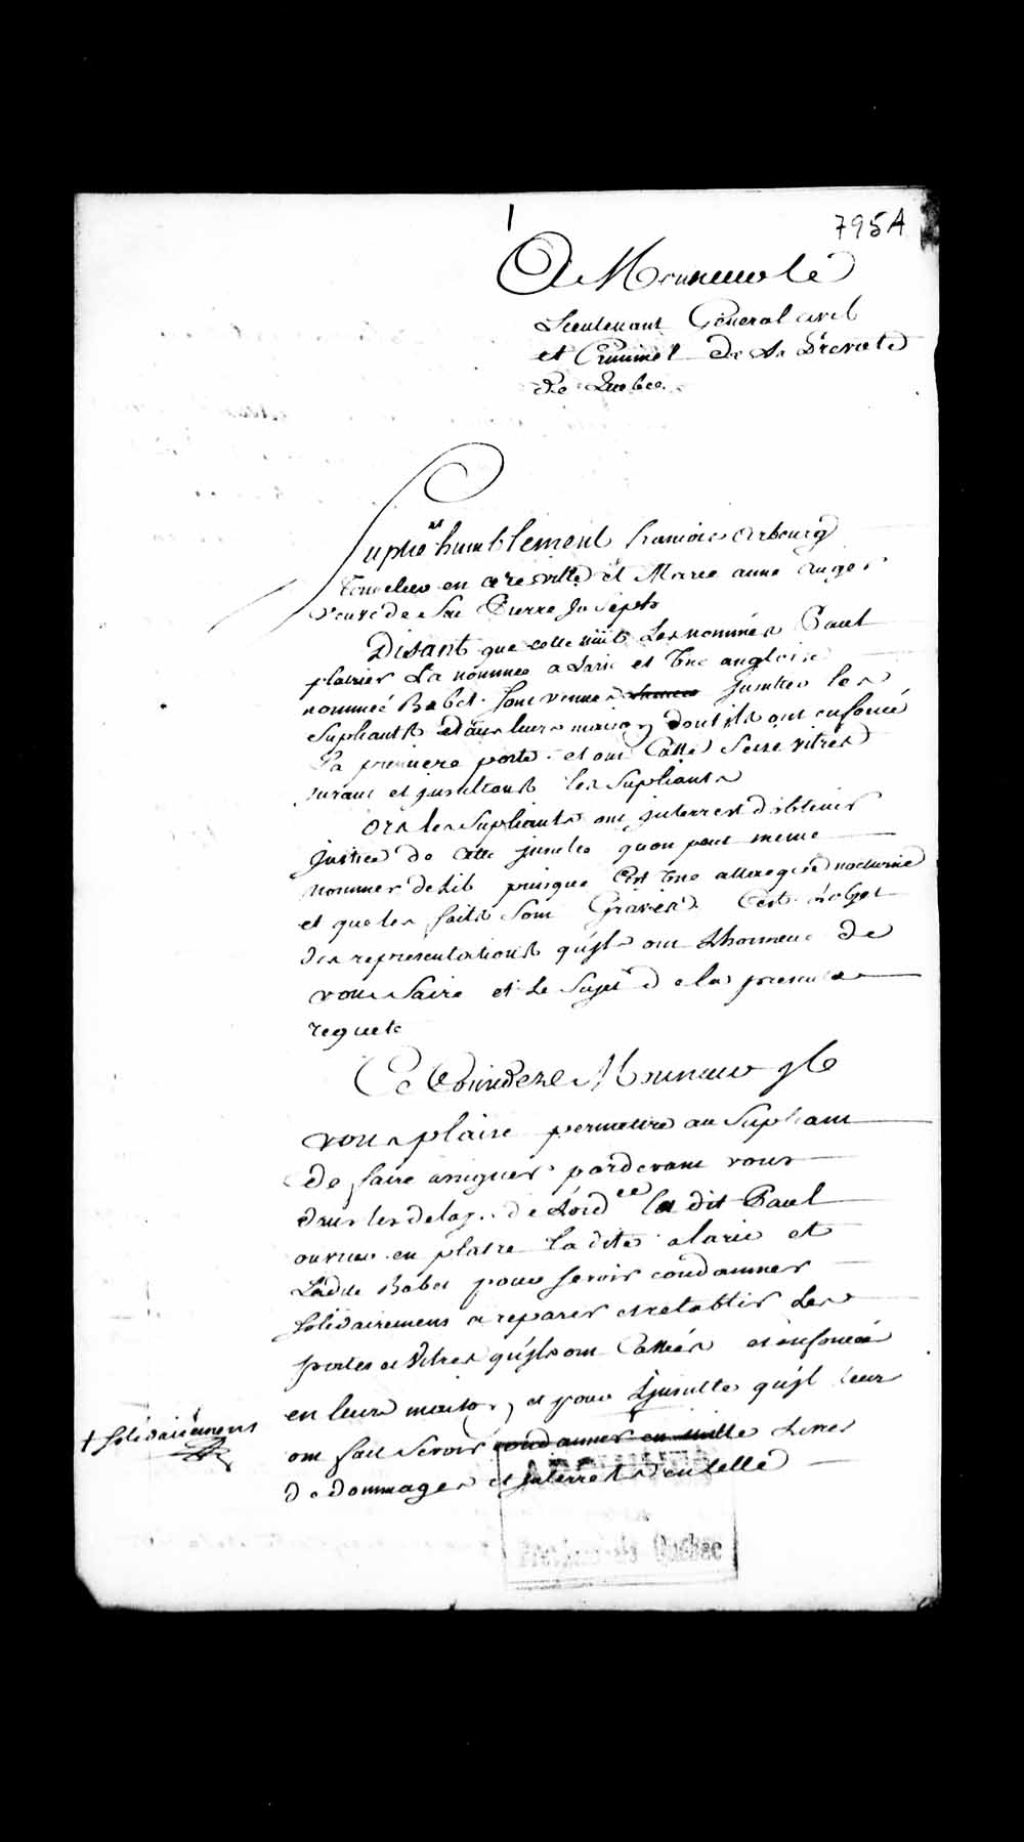 1
795A
A Monsieur le
Lieutenant General civil
et Criminel De La Prevoté
De Quebec
Suplie nt humblement francois arbourg
Tonnelier en cette ville et Marie anne auger
veuve de feu Pierre Joseph
Disant que cette nuit Les nommés Paul
platrier La nommée a Larie et Une angloise
nommée Babet sont venues insulter les
Supliants dans leurs maison dont ils ont enfoncé
La premiere porte et ont Cassé Seise vitres
jurant et insultants les Supliants
Ors les Supliants ont interrest d'obtenir
justice de cette insulte quon peut meme
nommer delit puisque C'est Une nocturne
et que les faits sont Graves C'est L'objet
des representations qu'jls ont Lhonneur De
vous faire et Le Sujet de la presente
requete
Ce Consideré Monsieur jl
vous plaise permettre au Supliant
De faire assigner pardevant vous
dans les delays de Lord ce le dit Paul
ouvrier en platre Ladite alarie et
Ladite Babet pour se voir condamner
Solidairement a reparer et retablir Les
portes et Vitres qu'jls ont Cassées et enfoncée
en leurs maison, et pour Linsulte qu'jl leur
+ solidairement
ont fait se voir condamner en mille Livres
De dommages et interrests en telle
ARCHIVES
Provinciale Québec